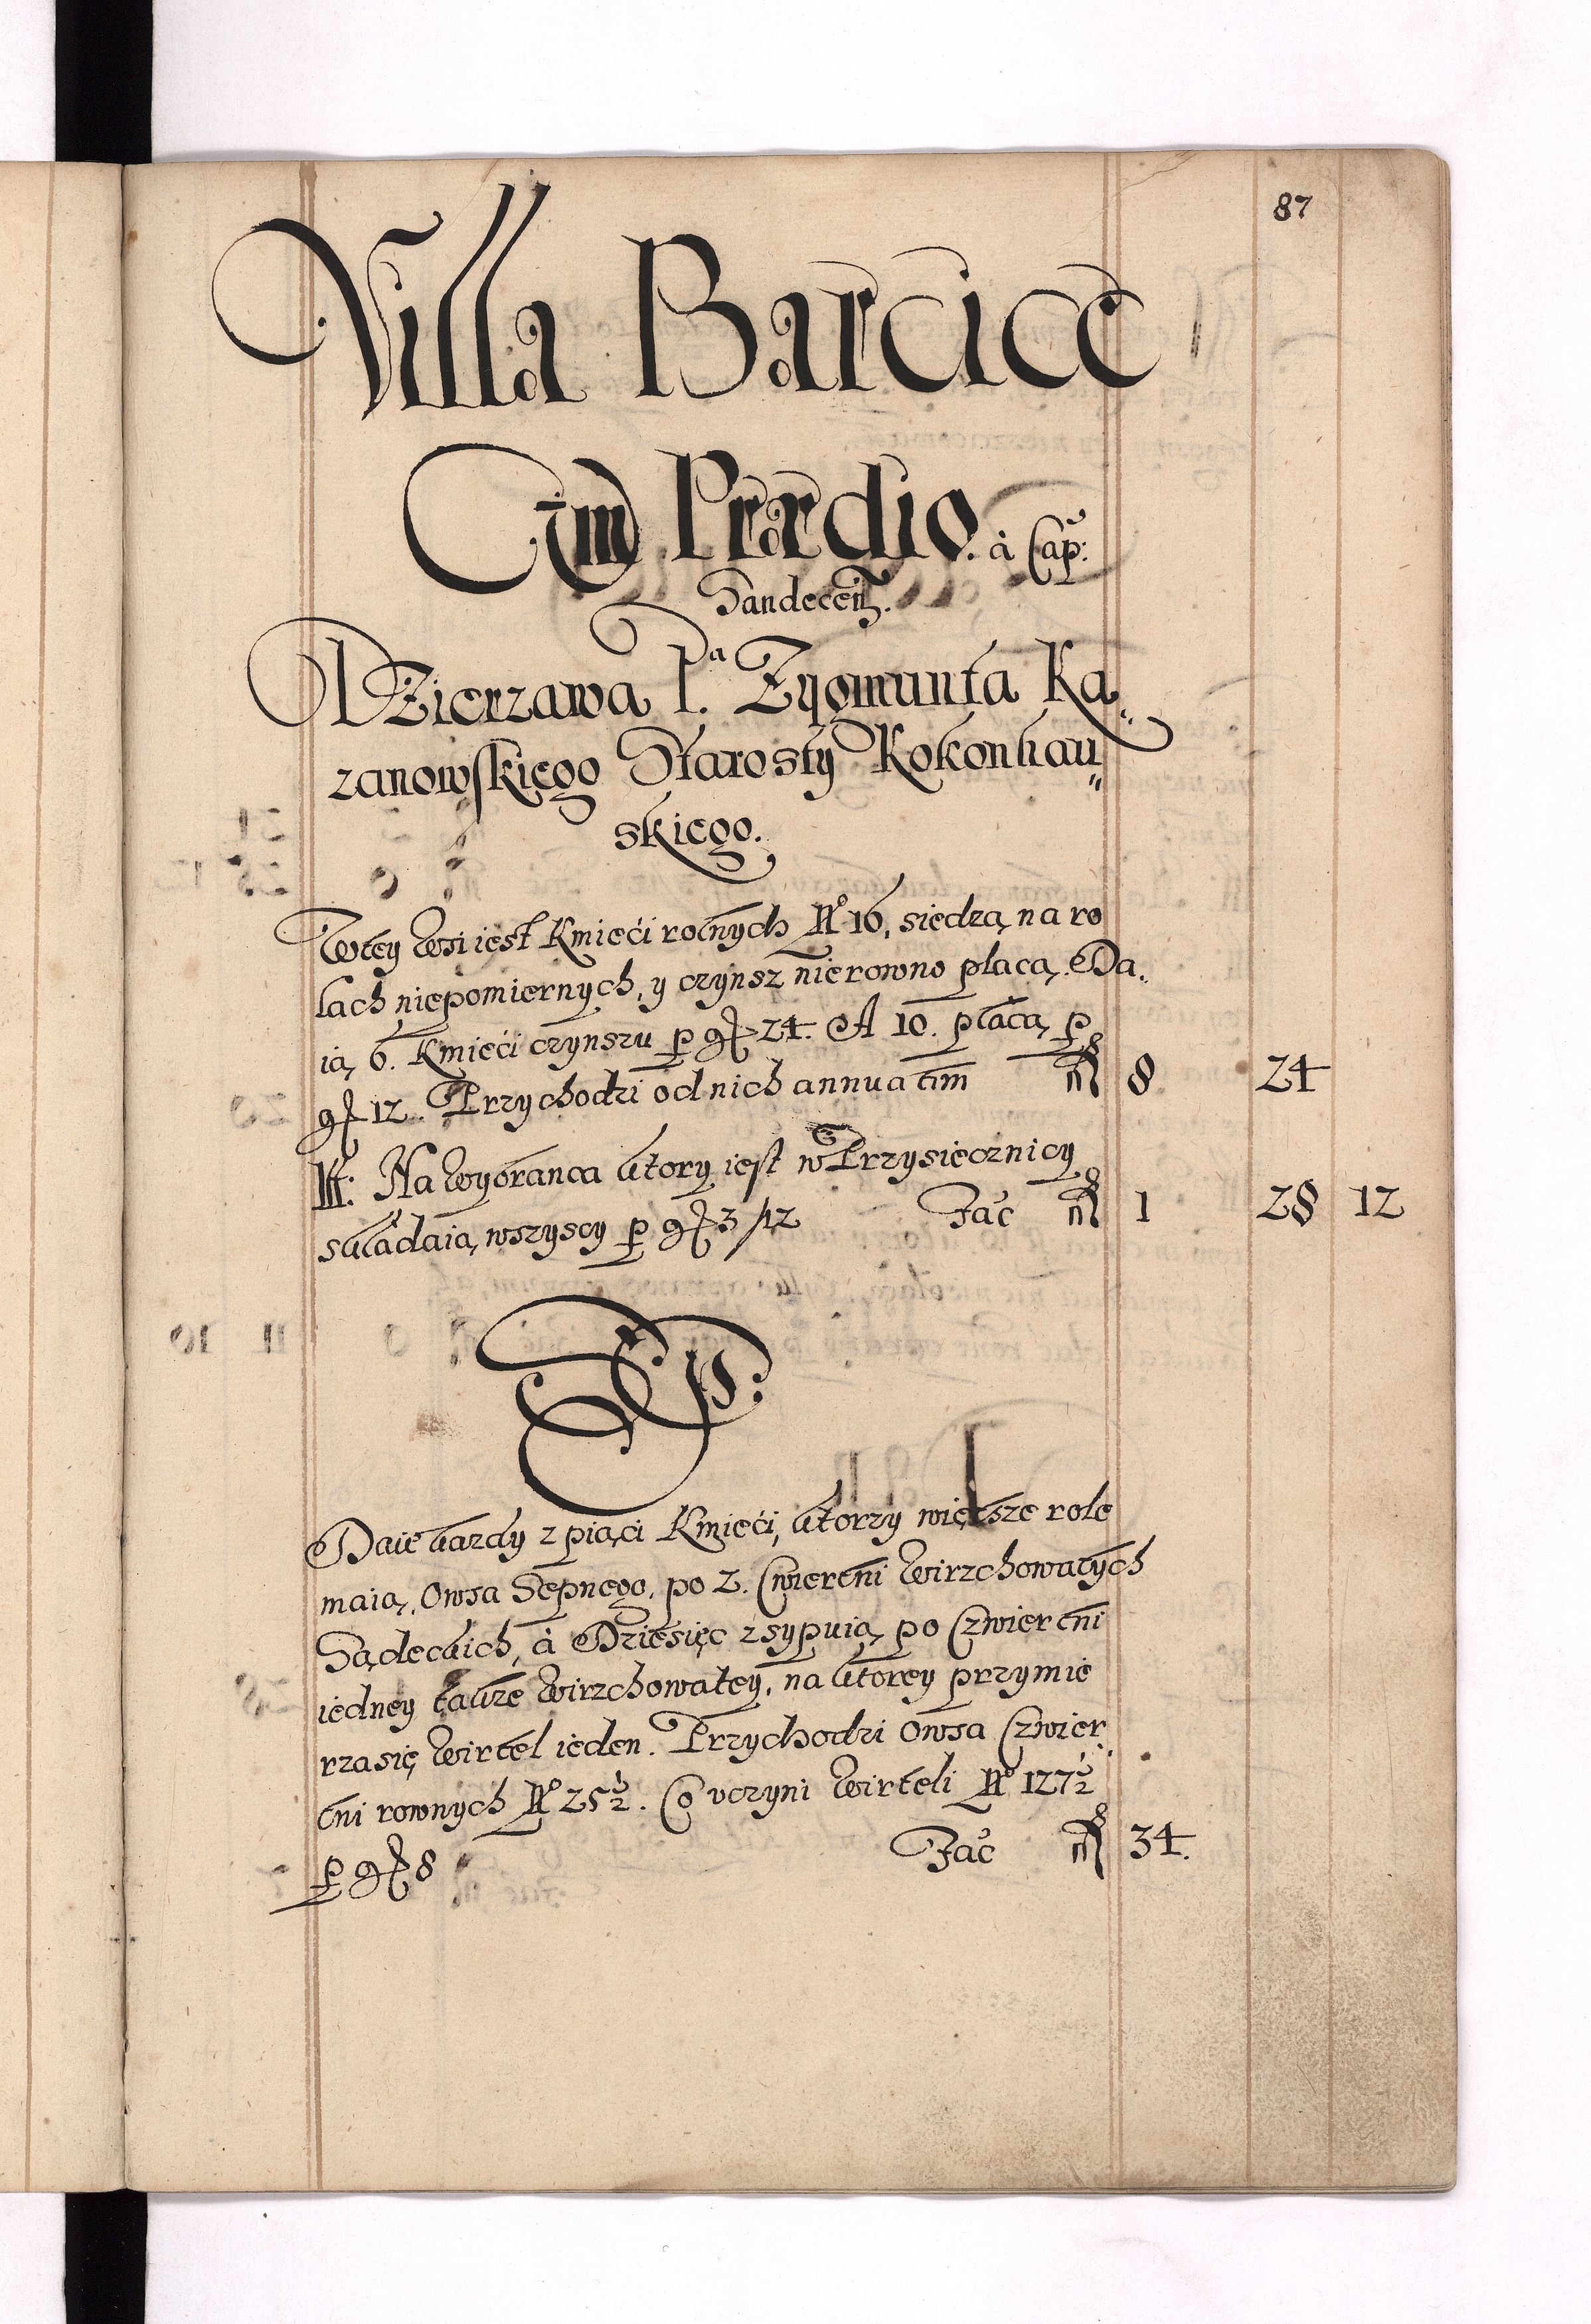 87
Villa Barcice
Cum Prædio. à Cap:
Sandecen.
Dzierzawa P.ª Zygmunta Ka„
zanowskiego Starosty Kokonhau„
skiego.
W tey Wsi iest Kmieći rolnych Nº 16, siedzą na ro
lach niepomiernych, y czynsz nierowno płacą. Da„
ią, 6. Kmieći czynszu p gr 24. A 10. płacą, p
gr 12. Przychodzi od nich annuatim fl 8 24
It: Na Wybranca ktory iest w Przysiecznicy
składaią, wszyscy p gr 3/12 Fac fl 1 28 12
SEP:
Daie każdy z piąci Kmieći, ktorzy większe role
maią, Owsa Sepnego, po 2. Cwiertni Wirzchowatych
Sądeckich, à Dziesięc zsypuią, po Czwiertni
iedney także Wirzchowatey, na ktorey przymie
rza się Wirtel ieden. Przychodzi Owsa Czwier„
tni rownych Nº 25½. Co vczyni Wirteli Nº 127½
p gr 8 Fac fl 34.